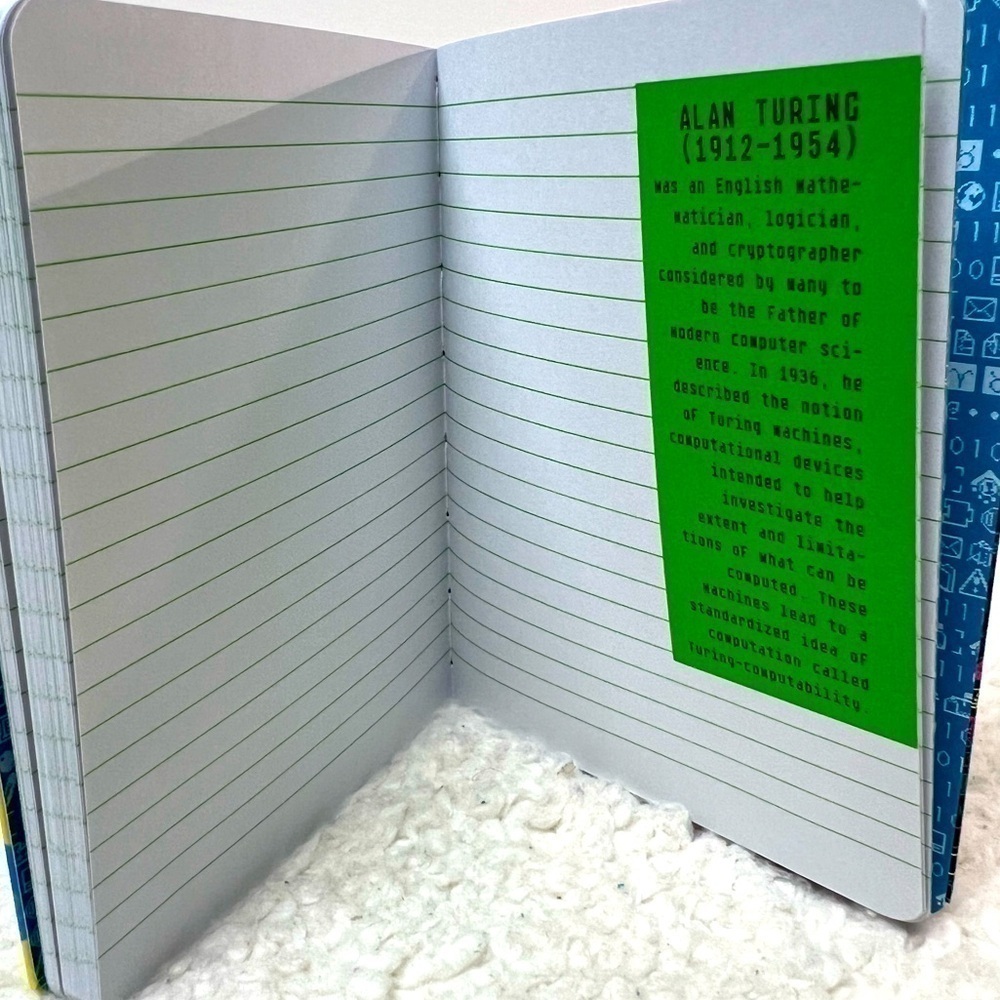 ALAN TURING
(1912-1954)
was an English mathe-
matician, logician,
and cryptographer
considered by many to
be the Father of
modern computer sci-
ence. In 1936, he
described the notion
of Turing machines,
computational devices
intended to help
investigate the
extent and limita-
tions of what can be
computed. These
machines lead to a
standardized idea of
computation called
Turing-computability.